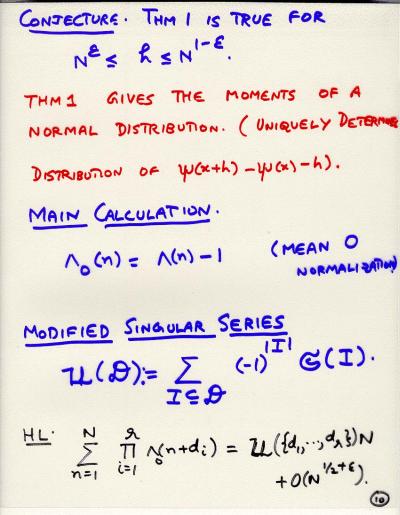 CONJECTURE. THM 1 IS TRUE FOR
N^ε ≤ h ≤ N^{1-ε}.
THM 1 GIVES THE MOMENTS OF A
NORMAL DISTRIBUTION. (UNIQUELY DETERMINE
DISTRIBUTION OF ψ(x+h) - ψ(x) - h).
MAIN CALCULATION.
Λ₀(n) = Λ(n) - 1 (MEAN 0
NORMALIZATION)
MODIFIED SINGULAR SERIES
𝔘(𝒟) := ∑_{I ⊆ 𝒟} (-1)^{|I|} 𝔖(I).
HL: ∑_{n=1}^{N} ∏_{i=1}^{r} Λ₀(n+d_i) = 𝔘({d₁,...,d_r})N
+ O(N^{1/2+ε}).
10